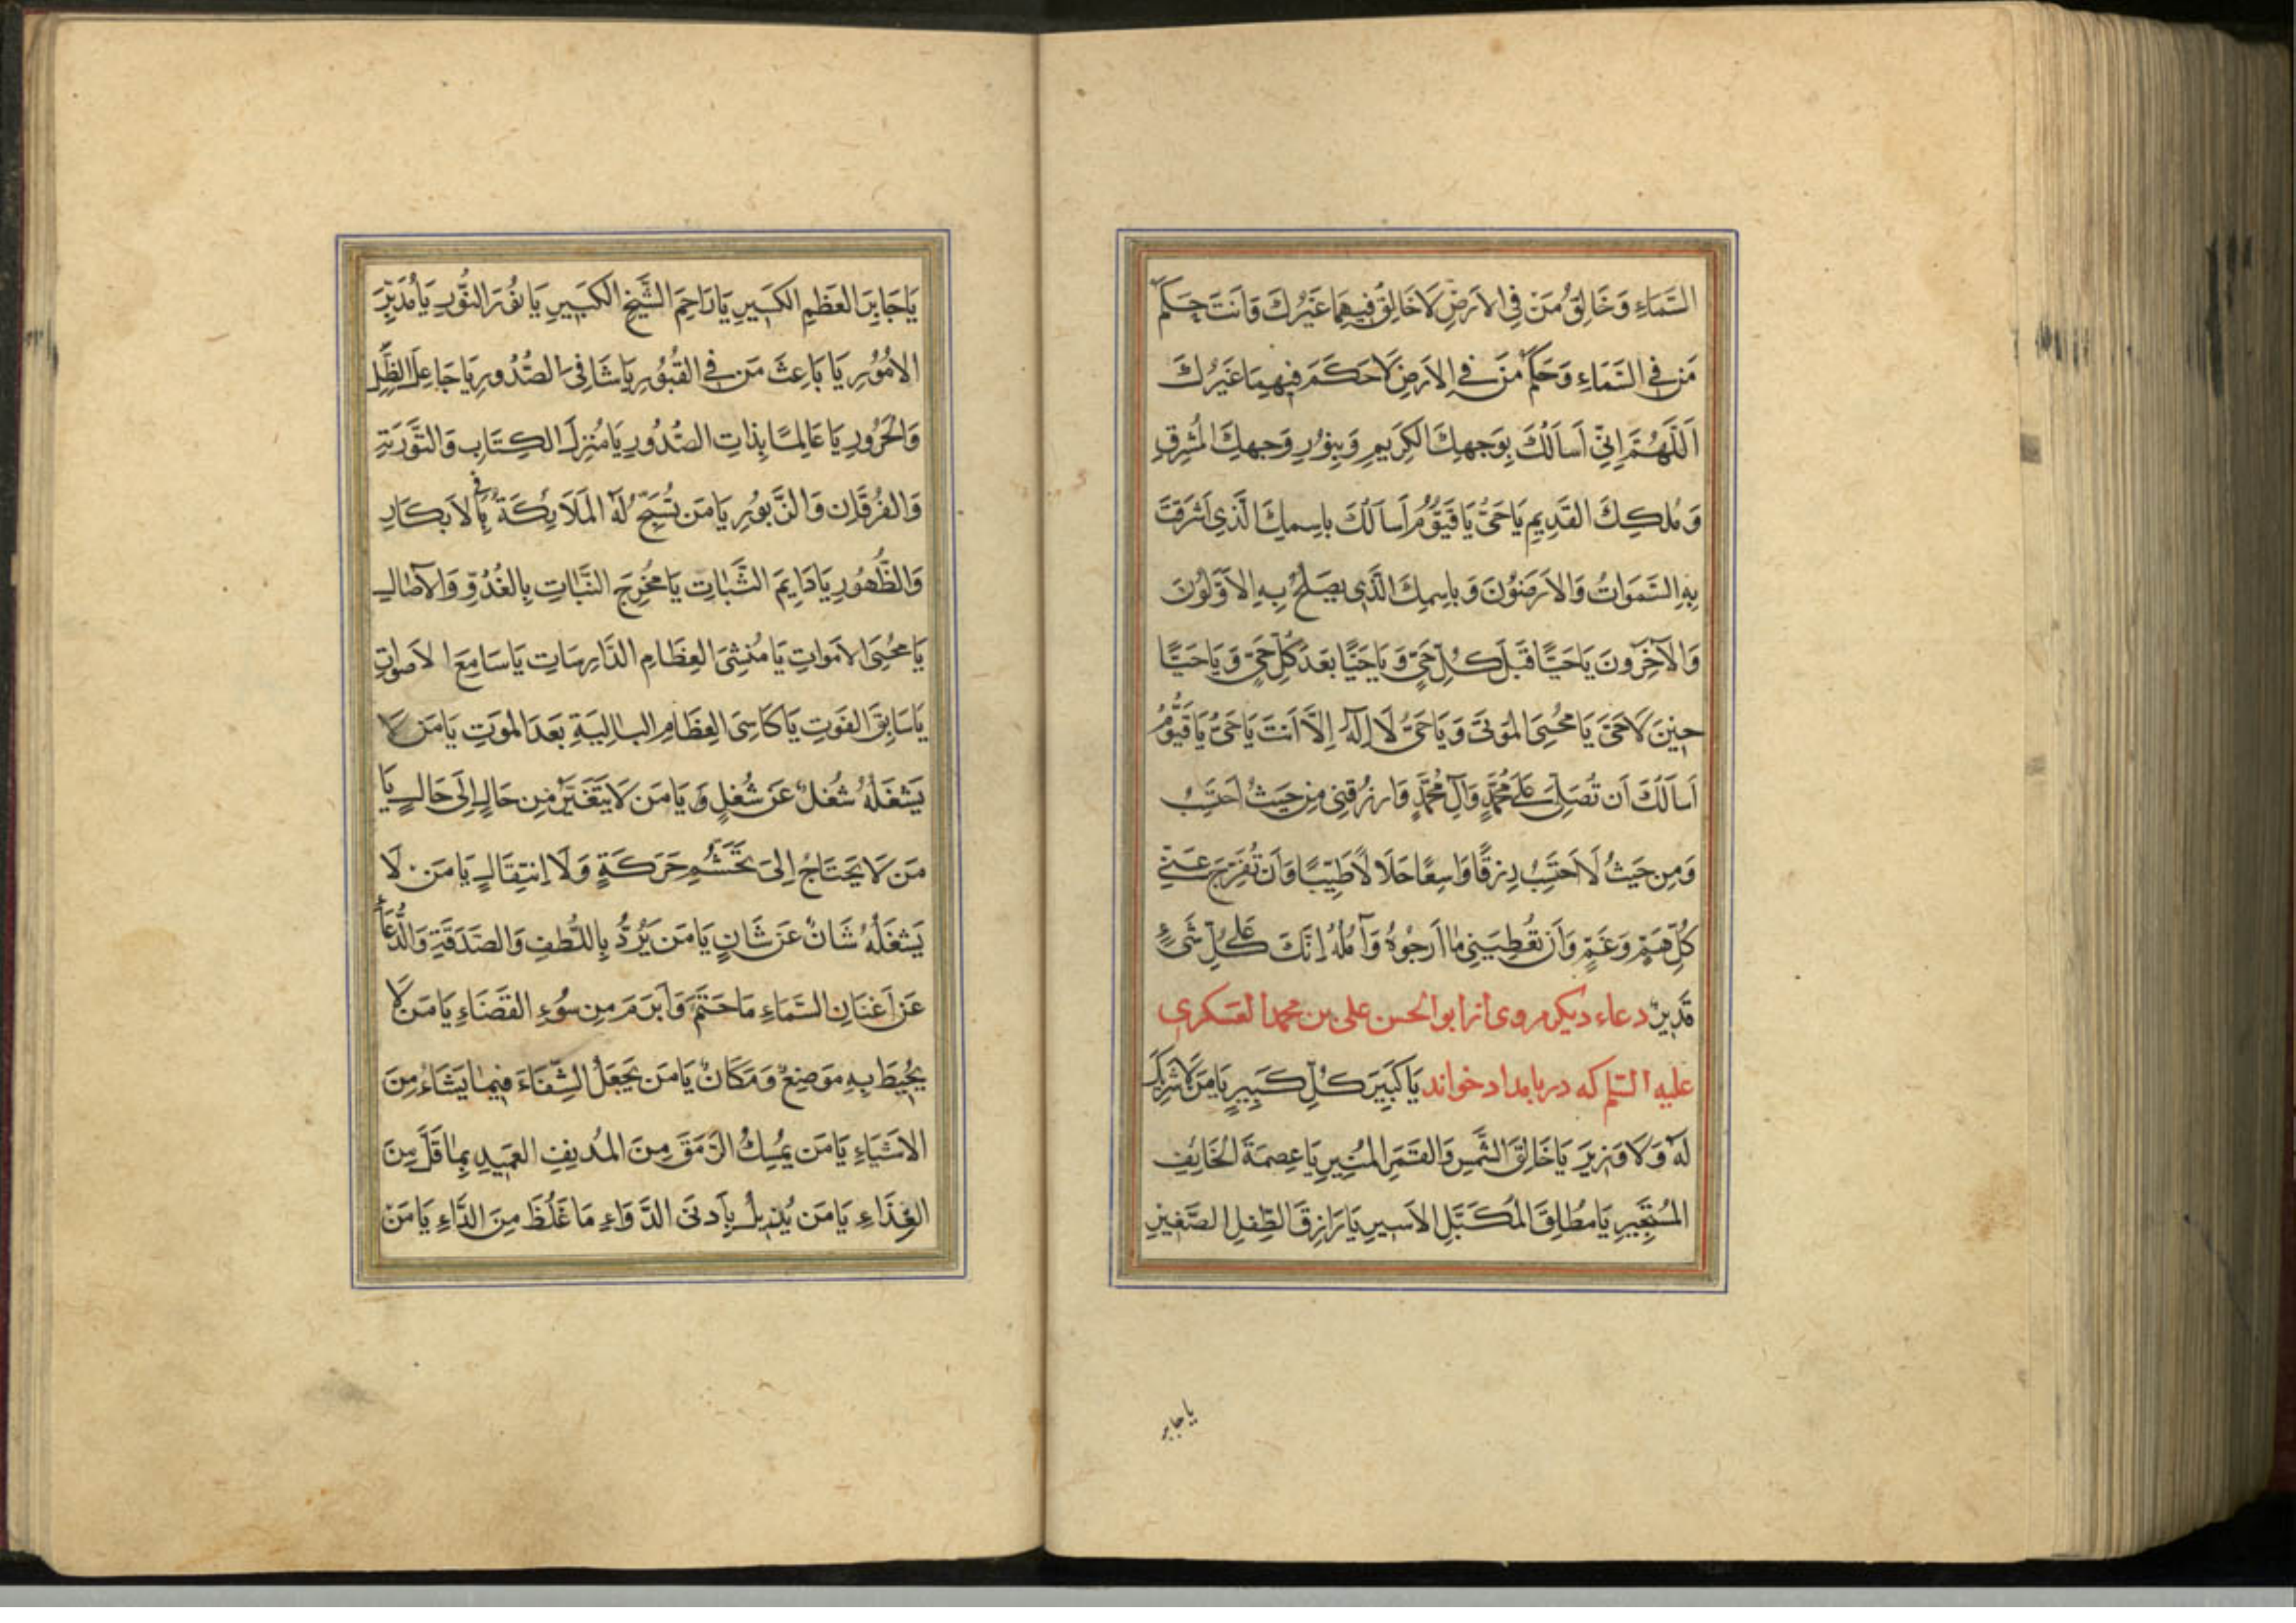 السَّمَاءِ وَخَالِقُ مَنْ فِي الاَرضِ لَا خَالِقَ فِيهِمَا غَيْرُكَ وَاَنتَ حَكَمُ
مَن فِي السَّمَاءِ وَحَكَمُ مَنْ فِي الاَرضِ لَا حَكَمَ فِيهِمَا غَيْرُكَ
اَللَّهُمَّ اِنِّي اَساَلُكَ بِوَجهِكَ الكَرِيمِ وَبِنُورِ وَجهِكَ المُشرِقِ
وَمُلكِكَ القَدِيمِ يَا حَيُّ يَا قَيُّومُ اَساَلُكَ بِاسِمِكَ الَّذِي اَشرَقَت
بِهِ السَّمَوَاتُ وَالاَرَضُونَ وَبِاسِمِكَ الَّذِي يَصلَحُ بِهِ الاَوَّلُونَ
وَالآخِرُونَ يَا حَيًّا قَبلَ كُلِّ حَيٍّ وَيَا حَيًّا بَعدَ كُلِّ حَيٍّ وَيَا حَيًّا
حِينَ لَا حَيَّ يَا مُحيِيَ المَوتَى وَيَا حَيُّ لَا اِلَهَ اِلَّا اَنتَ يَا حَيُّ يَا قَيُّومُ
اَساَلُكَ اَن تُصَلِّيَ عَلَى مُحَمَّدٍ وَآلِ مُحَمَّدٍ وَارزُقنِي مِن حَيثُ اَحتَسِبُ
وَمِن حَيثُ لَا اَحتَسِبُ رِزقًا وَاسِعًا حَلَالًا طَيِّبًا وَاَن تُفَرِّجَ عَنِّي
كُلَّ هَمٍّ وَغَمٍّ وَاَن تُعطِيَنِي مَا اَرجُوهُ وَآمُلُهُ اِنَّكَ عَلَى كُلِّ شَيءٍ
قَدِيرٌ دعاء دیکر مروی از ابو الحسن علی بن محمد العسکری
علیه السلم که در بامداد خواند يَا كَبِيرَ كُلِّ كَبِيرٍ يَا مَن لَا شَرِيكَ
لَهُ وَلَا وَزِيرَ يَا خَالِقَ الشَّمسِ وَالقَمَرِ المُنِيرِ يَا عِصمَةَ الخَائِفِ
المُستَجِيرِ يَا مُطلِقَ المُكَبَّلِ الاَسِيرِ يَا رَازِقَ الطِّفلِ الصَّغِيرِ
یا جابر
يَا جَابِرَ العَظمِ الكَسِيرِ يَا رَاحِمَ الشَّيخِ الكَبِيرِ يَا نُورَ النُّورِ يَا مُدَبِّرَ
الاُمُورِ يَا بَاعِثَ مَن فِي القُبُورِ يَا شَافِيَ الصُّدُورِ يَا جَاعِلَ الظِّلِّ
وَالحَرُورِ يَا عَالِمًا بِذَاتِ الصُّدُورِ يَا مُنزِلَ الكِتَابِ وَالتَّورَيةِ
وَالفُرقَانِ وَالزَّبُورِ يَا مَن تُسَبِّحُ لَهُ المَلَائِكَةُ بِالاَبكَارِ
وَالظُّهُورِ يَا دَايِمَ الثَّبَاتِ يَا مُخرِجَ النَّبَاتِ بِالغُدُوِّ وَالآصَالِ
يَا مُحيِيَ الاَموَاتِ يَا مُنشِئَ العِظَامِ الدَّارِسَاتِ يَا سَامِعَ الاَصوَاتِ
يَا سَابِقَ الفَوتِ يَا كَاسِيَ العِظَامِ البَالِيَةِ بَعدَ المَوتِ يَا مَن لَا
يَشغَلُهُ شُغلٌ عَن شُغلٍ وَيَا مَن لَا يَتَغَيَّرُ مِن حَالٍ اِلَى حَالٍ يَا
مَن لَا يَحتَاجُ اِلَى تَجَشُّمِ حَرَكَةٍ وَلَا اِنتِقَالٍ يَا مَن لَا
يَشغَلُهُ شَانٌ عَن شَانٍ يَا مَن يَرُدُّ بِاللُّطفِ وَالصَّدَقَةِ وَالدُّعَاءِ
عَن اَعْنَانِ السَّمَاءِ مَا حَتَمَ وَاَبرَمَ مِن سُوءِ القَضَاءِ يَا مَن لَا
يُحِيطُ بِهِ مَوضِعٌ وَمَكَانٌ يَا مَن يَجعَلُ الشِّفَاءَ فِيمَا يَشَاءُ مِنَ
الاَشيَاءِ يَا مَن يُمسِكُ الرَّمَقَ مِنَ المُدنِفِ العَمِيدِ بِمَا قَلَّ مِنَ
الغِذَاءِ يَا مَن يُزِيلُ بِاَدنَى الدَّوَاءِ مَا غَلُظَ مِنَ الدَّاءِ يَا مَن